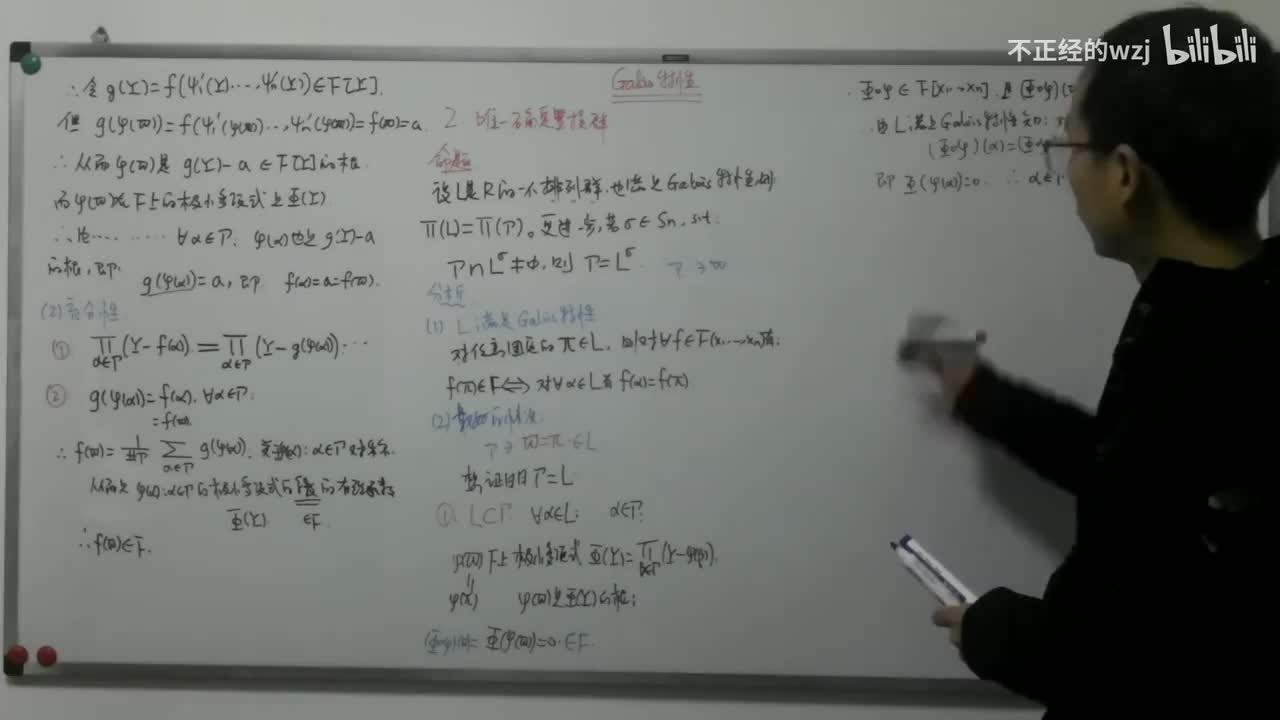 不正经的wzj bilibili
∴令 g(Y)=f(ψ₁'(Y)⋯,ψₙ'(Y))∈F[Y].
但 g(φ(ϖ))=f(ψ₁'(φ(ϖ))⋯,ψₙ'(φ(ϖ)))=f(ϖ)=a.
∴从而 φ(ϖ)是 g(Y)-a ∈F[Y]的根
而φ(ϖ)在F上的极小多项式是Φ(Y)
∴ ⋯⋯ ∀α∈P. φ(α)也是g(Y)-a
的根, 即
g(φ(α))=a, 即 f(α)=a=f(ϖ).
(2) 充分性
① ∏_{α∈P}(Y-f(α))=∏_{α∈P}(Y-g(φ(α)))⋯
② g(φ(α))=f(α), ∀α∈P.
=f(ϖ)
∴f(ϖ)=1/#P ∑_{α∈P} g(φ(α)). 关于φ(α):α∈P对称.
从而是φ(α):α∈P的极小多项式的系数的
Φ(Y) ∈F
∴f(ϖ)∈F.
Galois特性
2. 唯一 置换群
命题
设L是R的一个排列群, 也满足Galois特性, 则
Π(L)=Π(P)。更进一步, 若σ∈Sₙ, s.t.
P∩L^σ≠Φ, 则 P=L^σ. P∋ϖ
分析
(1) L满足Galois特性
对任意固定的π∈L, 则对∀f∈F(x₁⋯xₙ)有:
f(π)∈F⟺对∀α∈L有 f(α)=f(π)
(2) 的情况
P∋ϖ=π∈L
要证明P=L
①. L⊂P ∀α∈L; α∈P?
φ(ϖ)F上极小多项式Φ(Y)=∏_{β∈P}(Y-φ(β)).
φ(π) φ(ϖ)是Φ(Y)的根;
(Φ∘φ)(ϖ)=Φ(φ(ϖ))=0∈F.
Φ∘φ∈F[x₁⋯xₙ]. 且 (Φ∘φ)
∴由L满足Galois特性知:
(Φ∘φ)(α)=(Φ∘φ
即 Φ(φ(α))=0. ∴α∈